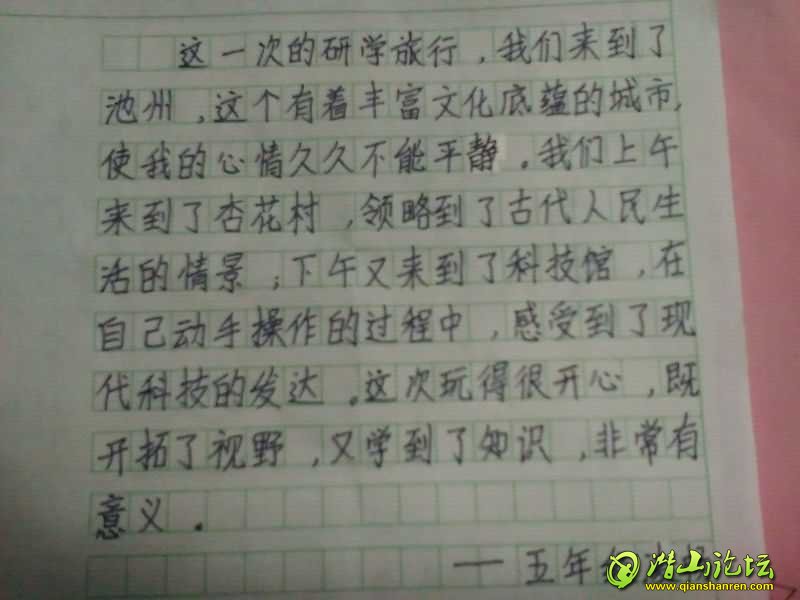 这一次的研学旅行，我们来到了
池州，这个有着丰富文化底蕴的城市，
使我的心情久久不能平静。我们上午
来到了杏花村，领略到了古代人民生
活的情景；下午又来到了科技馆，在
自己动手操作的过程中，感受到了现
代科技的发达。这次玩得很开心，既
开拓了视野，又学到了知识，非常有
意义。
——五年
潜山论坛
www.qianshanren.com